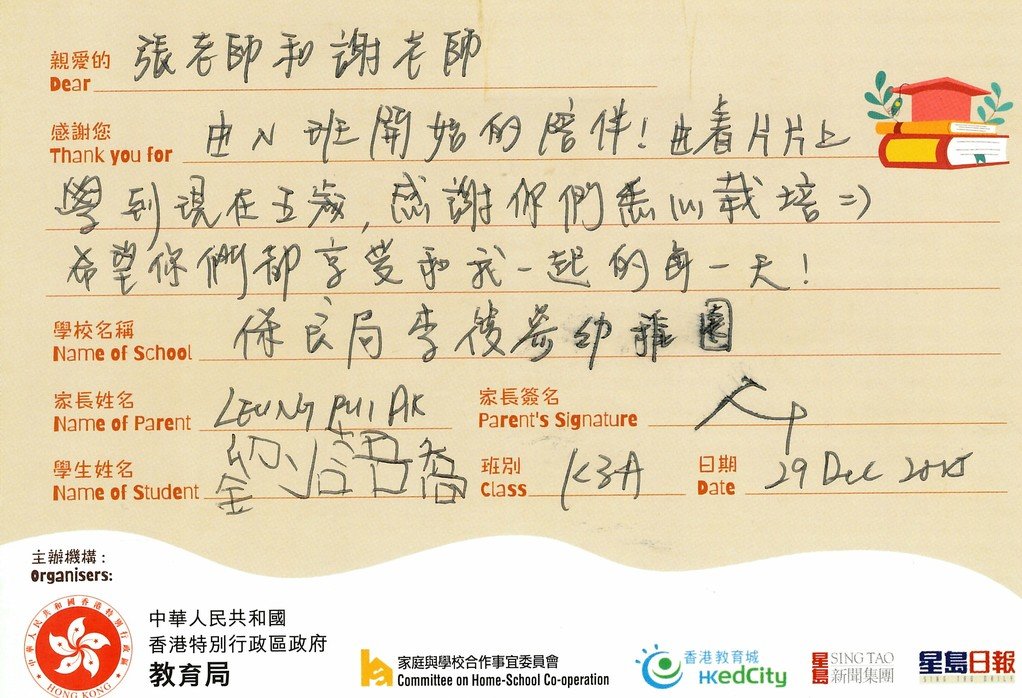 親愛的 張老師和謝老師
Dear
感謝您 由N班開始的陪伴！由看片片上
Thank you for
學到現在五歲，感謝你們悉心栽培=)
希望你們都享受和我一起的每一天！
學校名稱 保良局李俊芬幼稚園
Name of School
家長姓名 LEUNG PUI 家長簽名
Name of Parent Parent's Signature
學生姓名 語喬 班別 K3A 日期 29 Dec
Name of Student Class Date
主辦機構：
Organisers:
中華人民共和國香港特別行政區政府
HONG KONG
中華人民共和國
香港特別行政區政府
教育局
家庭與學校合作事宜委員會
Committee on Home-School Co-operation
香港教育城
HKedCity
星島 SING TAO
新聞集團
星島日報
SING TAO DAILY